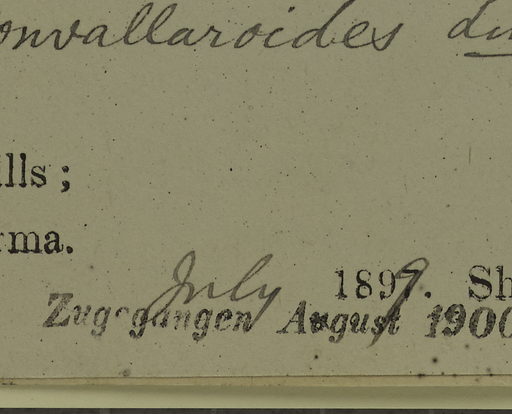 onvallaroides
ills;
rma.
July 1899. Sh
Zugegangen August 1900